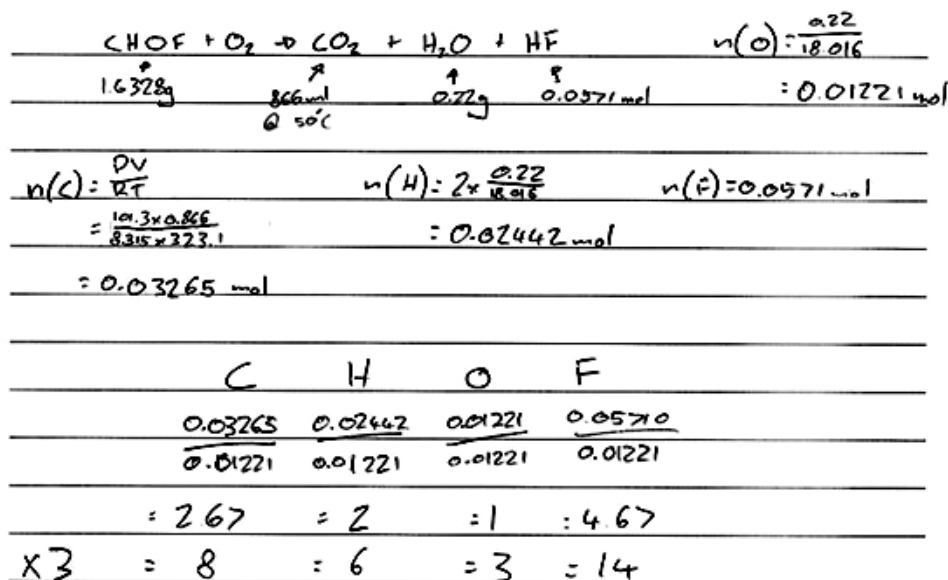 CHOF + O₂ → CO₂ + H₂O + HF n(O) = 0.22/18.016
1.6328g 866ml @ 50°C 0.22g 0.0571 mol = 0.01221 mol
n(C) = PV/RT n(H) = 2× 0.22/18.016 n(F) = 0.0571 mol
= 101.3×0.866/8.315×323.1 = 0.02442 mol
= 0.03265 mol
C H O F
0.03265/0.01221 0.02442/0.01221 0.01221/0.01221 0.05710/0.01221
= 2.67 = 2 = 1 = 4.67
×3 = 8 = 6 = 3 = 14